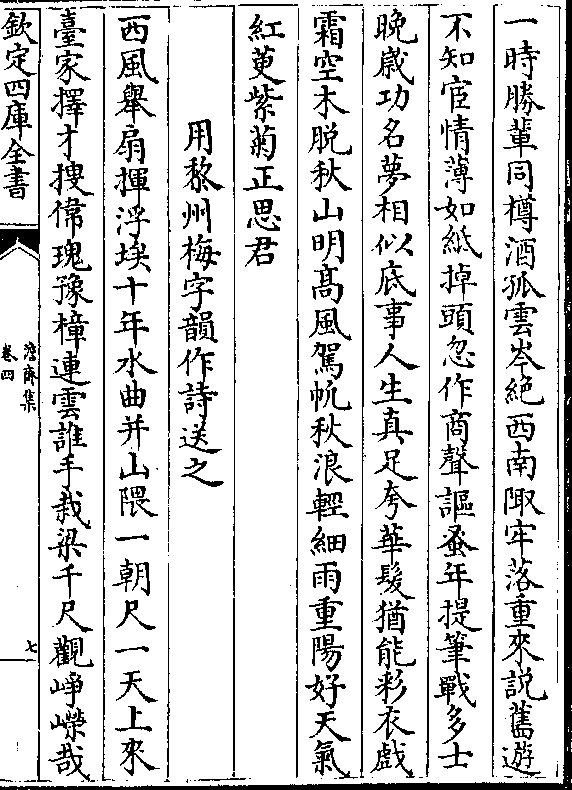 一時勝輩同樽酒孤雲岑絶西南陬牢落重來説舊遊
不知宦情薄如紙掉頭忽作商聲謳蚤年提筆戰多士
晚歳功名夢相似底事人生真足夸華髮猶能彩衣戲
霜空木脱秋山明髙風駕帆秋浪輕細雨重陽好天氣
紅萸紫菊正思君
用黎州梅字韻作詩送之
西風舉扇揮浮埃十年水曲并山隈一朝尺一天上來
臺家擇才搜偉瑰豫樟連雲誰手栽梁千尺觀崢嶸哉
欽定四庫全書
澹齋集
卷四
七